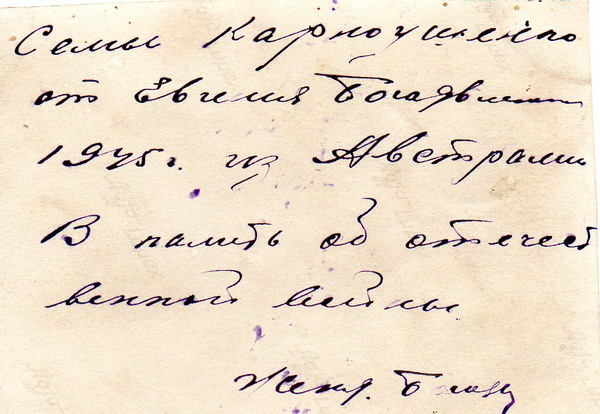 Семьи Карнаушенко
от Евгения Богоявлен
1945г. из Австралии
В память об отечест
венной войны
Женя. Богоя